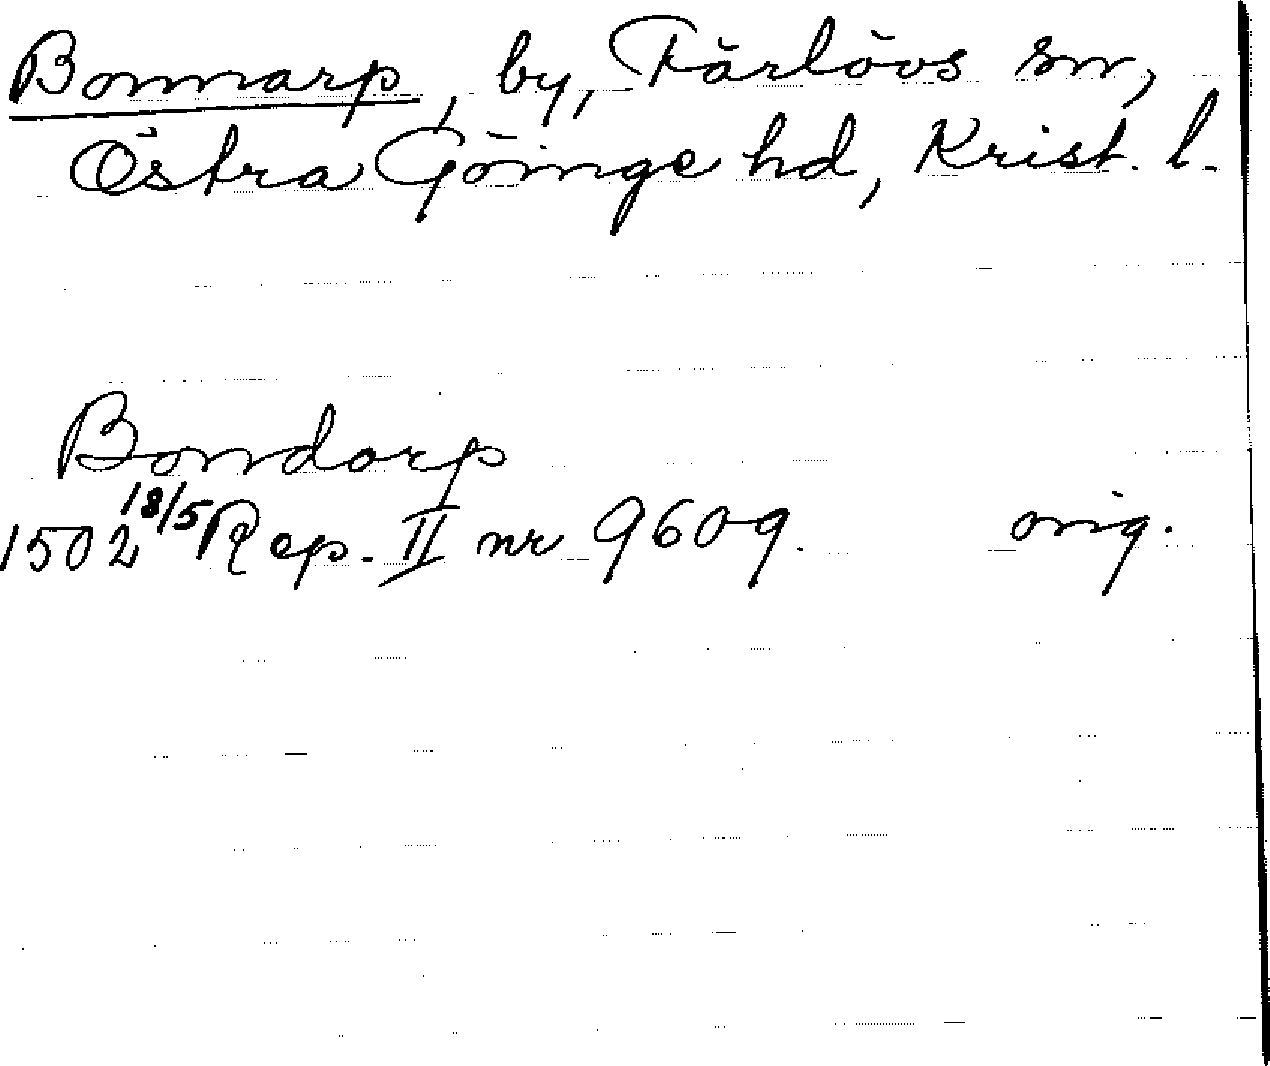 Bonnarp, by, Färlövs sn,
Östra Göinge hd, Krist. l.
Bondorp
1502 18/5 Rep. II nr 9609. orig.